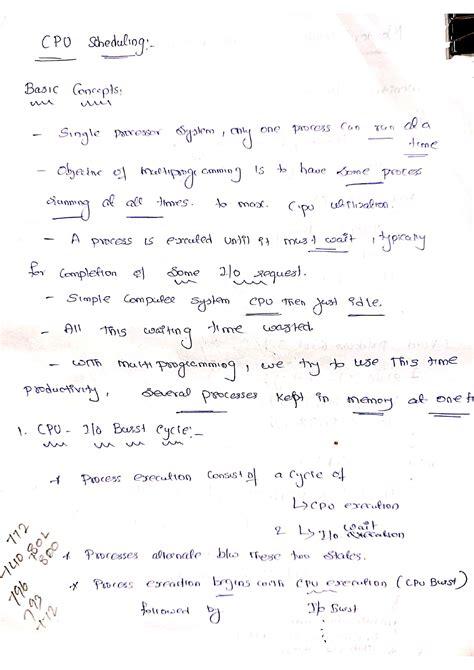 CPU Scheduling:-
Basic Concepts:
- Single processor system, only one process can run at a
time
- Objective of multiprogramming is to have some process
running at all times. to max. Cpu utilization.
- A process is executed until it must wait, typically
for completion of some I/o request.
- Simple Computer system CPU then just idle.
- All this waiting time wasted.
- with multiprogramming, we try to use this time
productivity, several processes kept in memory at one
1. CPU - I/o Burst Cycle:-
* Process execution consist of a cycle of
↳ CPU execution
2 ↳ I/o wait
* Processes alternate b/w these two states.
* Process execution begins with CPU execution (CPU Burst)
followed by I/o Burst
772
802
800
796
793